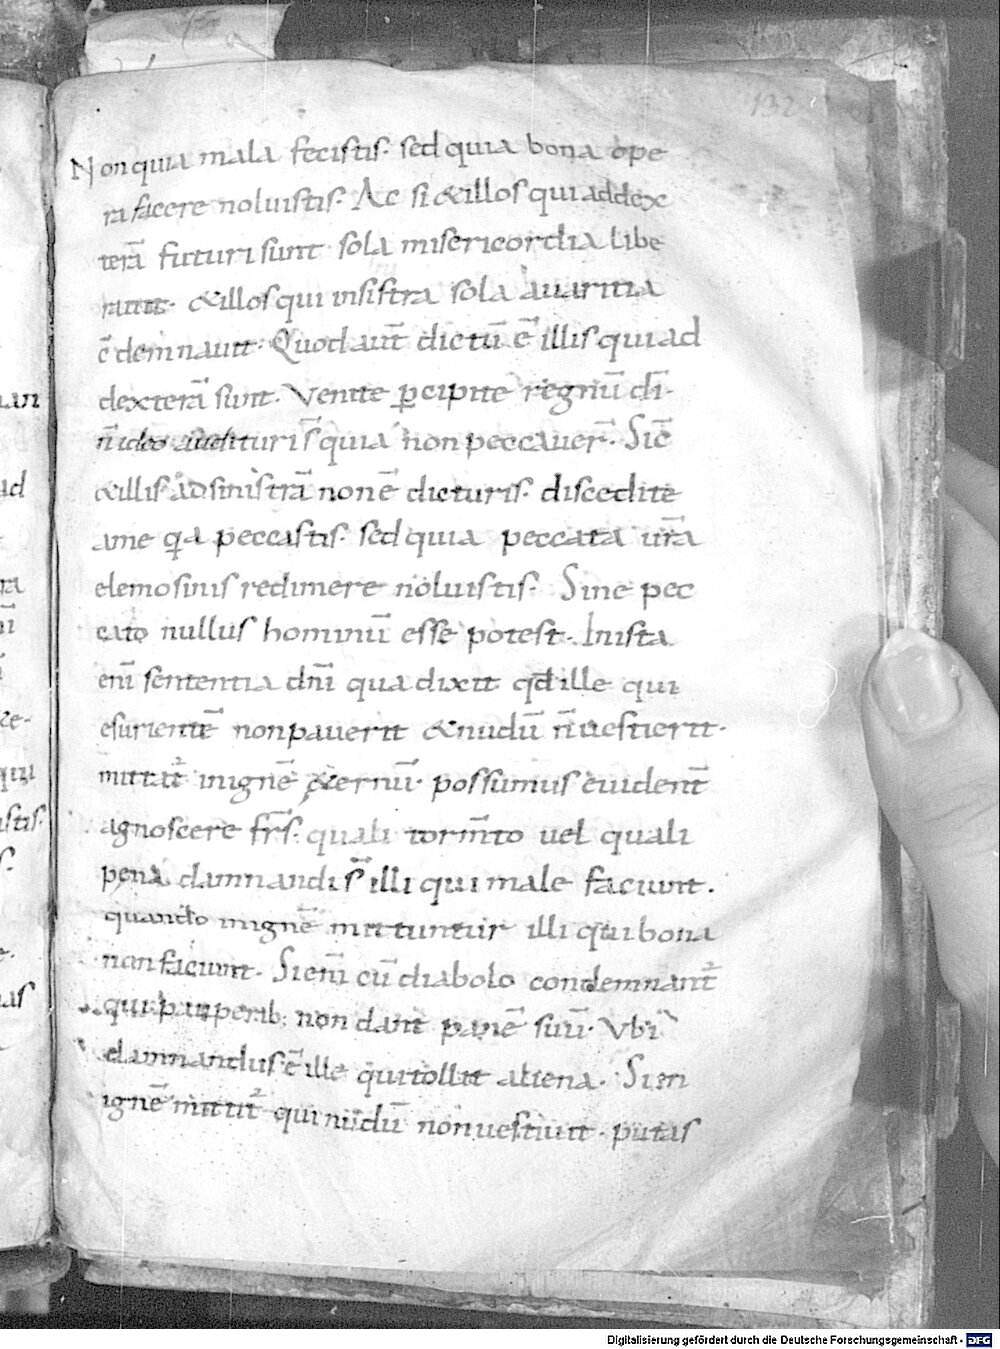 132
Non quia mala fecistis. sed quia bona ope
ra facere noluistis. Ac si & illos qui ad dex
terā futuri sunt sola misericordia libe
rauit. & illos qui in sistra sola auaritia
c̄demnauit. Quod aut̄ dictū ē illis qui ad
dexterā sunt. Venite p̲cipite regnū dī.
n̄ ideo audituri s̄ quia non peccauer̄. Sic̄
& illis ad sinistrā non ē dicturis. discedite
a me q̄a peccastis. sed quia peccata ur̄a
elemosinis redimere noluistis. Sine pec
cato nullus hominū esse potest. In ista
enī sententia dn̄i qua dixit qd̄ ille qui
esurientē non pauerit & nudū n̄ uestierit.
mittat᷑ in ignē &ernū. possumus euident̄
agnoscere fr̄s. quali torm̄to uel quali
pena damnandi s̄ illi qui male faciunt.
quando in ignē mittuntur illi qui bona
non faciunt. Si enī cū diabolo condemnant᷑
qui pauperib; non dant panē suū. Vbi
damnandus ē ille qui tollit aliena. Si in
ignē mittit᷑ qui nudū non uestiuit. putas
Digitalisierung gefördert durch die Deutsche Forschungsgemeinschaft - DFG